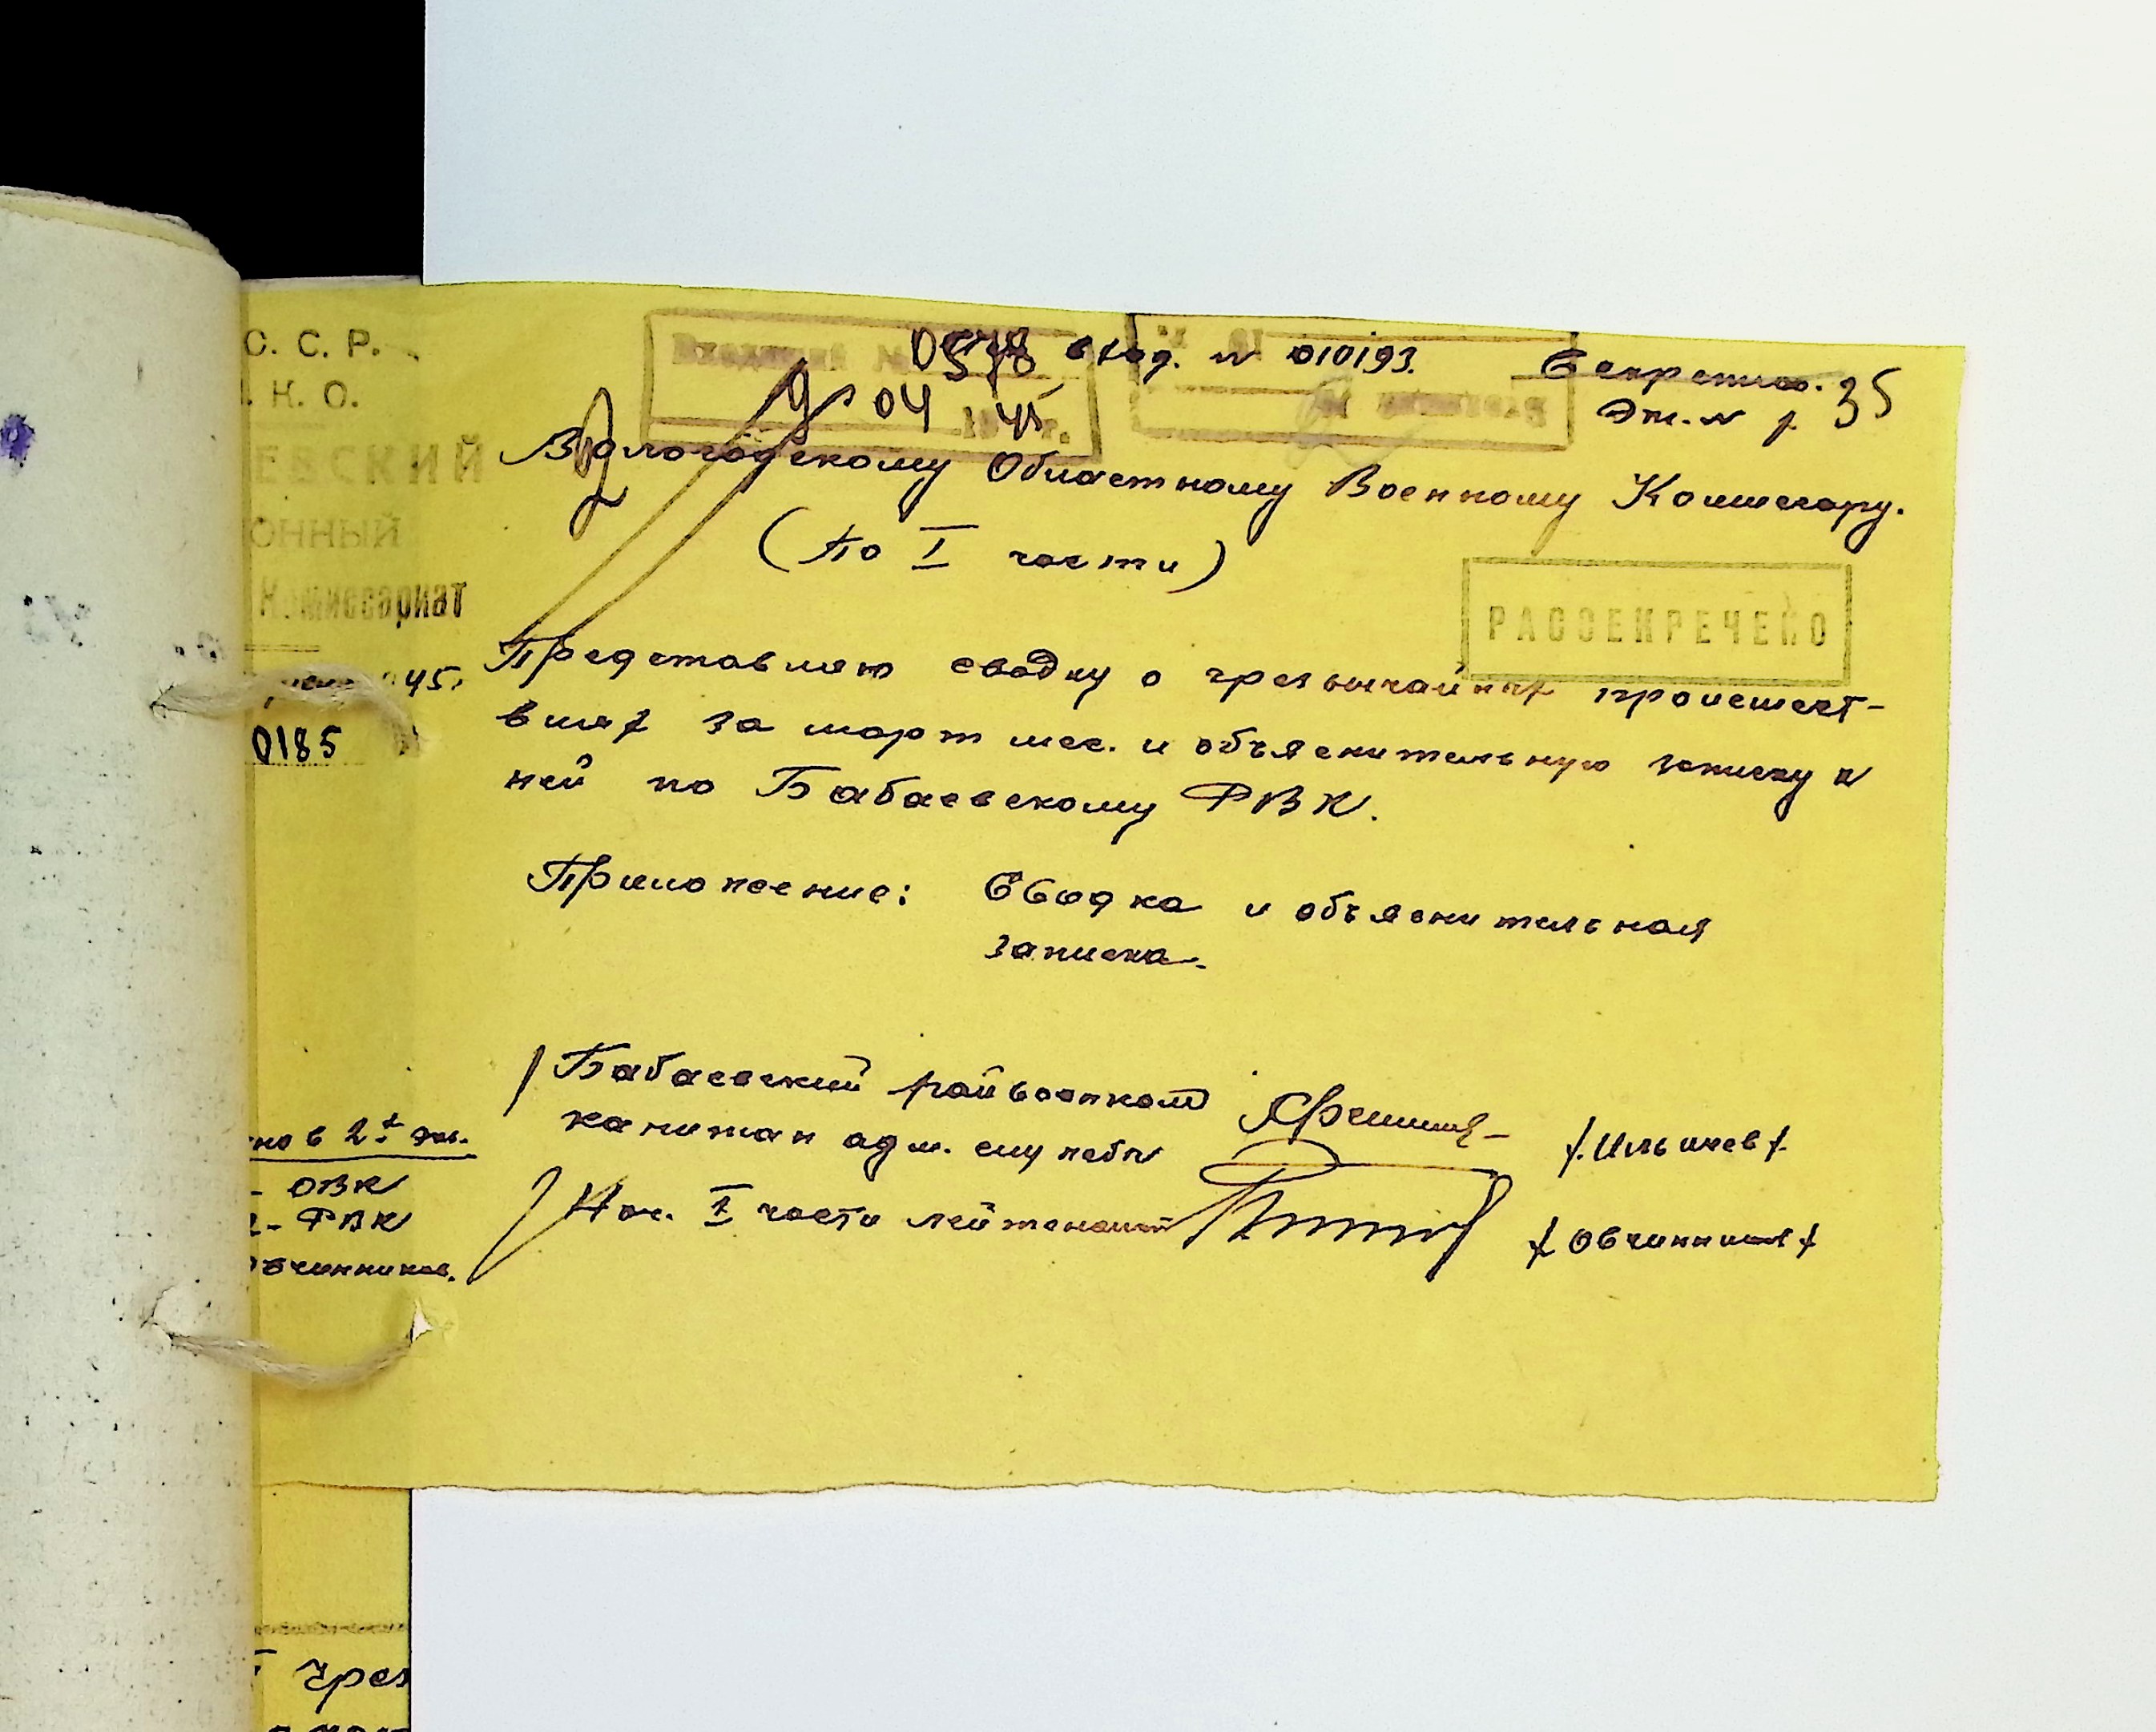 С. С. Р.
Н. К. О.
ЕВСКИЙ
ОННЫЙ
Комиссариат
45г.
0185
Входящий № 0578
9 04 1945 г.
вход. № 010193.
Секретно.
Экз. № 1
35
Вологодскому Областному Военному Комиссару.
(По I части)
РАССЕКРЕЧЕНО
Представляю сводку о чрезвычайных происшест-
виях за март мес. и объяснительную записку к
ней по Бабаевскому РВК.
Приложение: Сводка и объяснительная
записка.
Бабаевский райвоенком
капитан адм. службы
/Ильичев/
Нач. I части лейтенант
/Овчинников/
но в 2х экз.
- ОВК
2 - РВК
Овчинников.
чрез